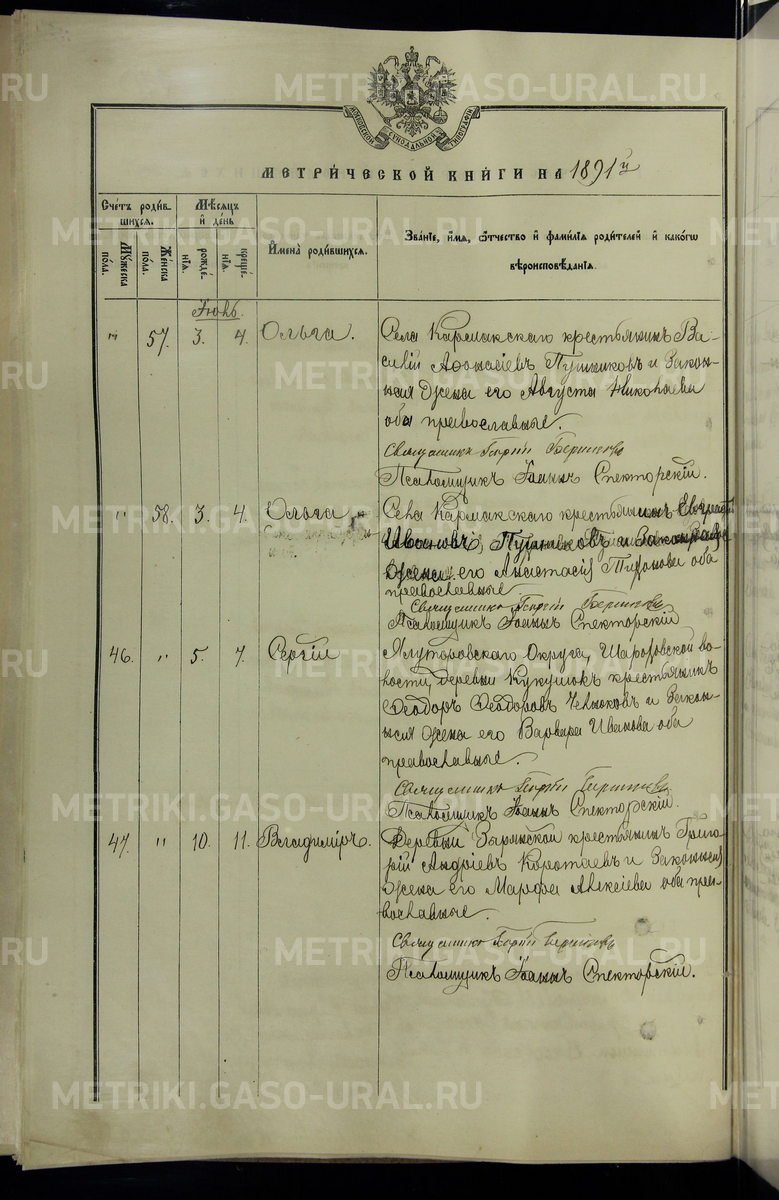 METRIKI.GASO-URAL.RU
МЕТРИ́ЧЕСКОЙ КНИ́ГИ НА 1891й
Сче́тъ роди́в-
шихся.
Му́жеска
по́ла.
Же́нска
по́ла.
Мѣ́сяцъ
и́ де́нь
рожде́-
нїя.
креще́-
нїя.
И҆мена̀ роди́вшихся.
Зва́нїе, и҆́мя, ѻ҆́тчество и҆ фами́лїя роди́телей и҆ како́гѡ
вѣроисповѣ́данїя.
Іюнь.
" 57. 3. 4. Ольга.
Села Кармакскаго крестьянинъ Ва-
силій Аѳонасіевъ Пушниковъ и закон-
ная жена его Августа Николаева
оба православные.
Священникъ Георгій
Псаломщикъ Іоаннъ Спекторскій.
" 58. 3. 4. Ольга
Села Кармакскаго крестьянинъ
Ивановъ Пушниковъ и законная
жена его Анастасія оба
православные
Священникъ Георгій
Псаломщикъ Іоаннъ Спекторскій
46. " 5. 7. Сергій
Ялуторовскаго Округа, во-
лости, деревни крестьянинъ
Ѳеодоръ Ѳеодоровъ и закон-
ная жена его Варвара Иванова оба
православные.
Священникъ Георгій
Псаломщикъ Іоаннъ Спекторскій.
47. " 10. 11. Владиміръ.
Деревни крестьянинъ Григо-
рій Андріевъ Коротаевъ и законная
жена его Марѳа Алексіева оба пра-
вославные.
Священникъ Георгій
Псаломщикъ Іоаннъ Спекторскій.